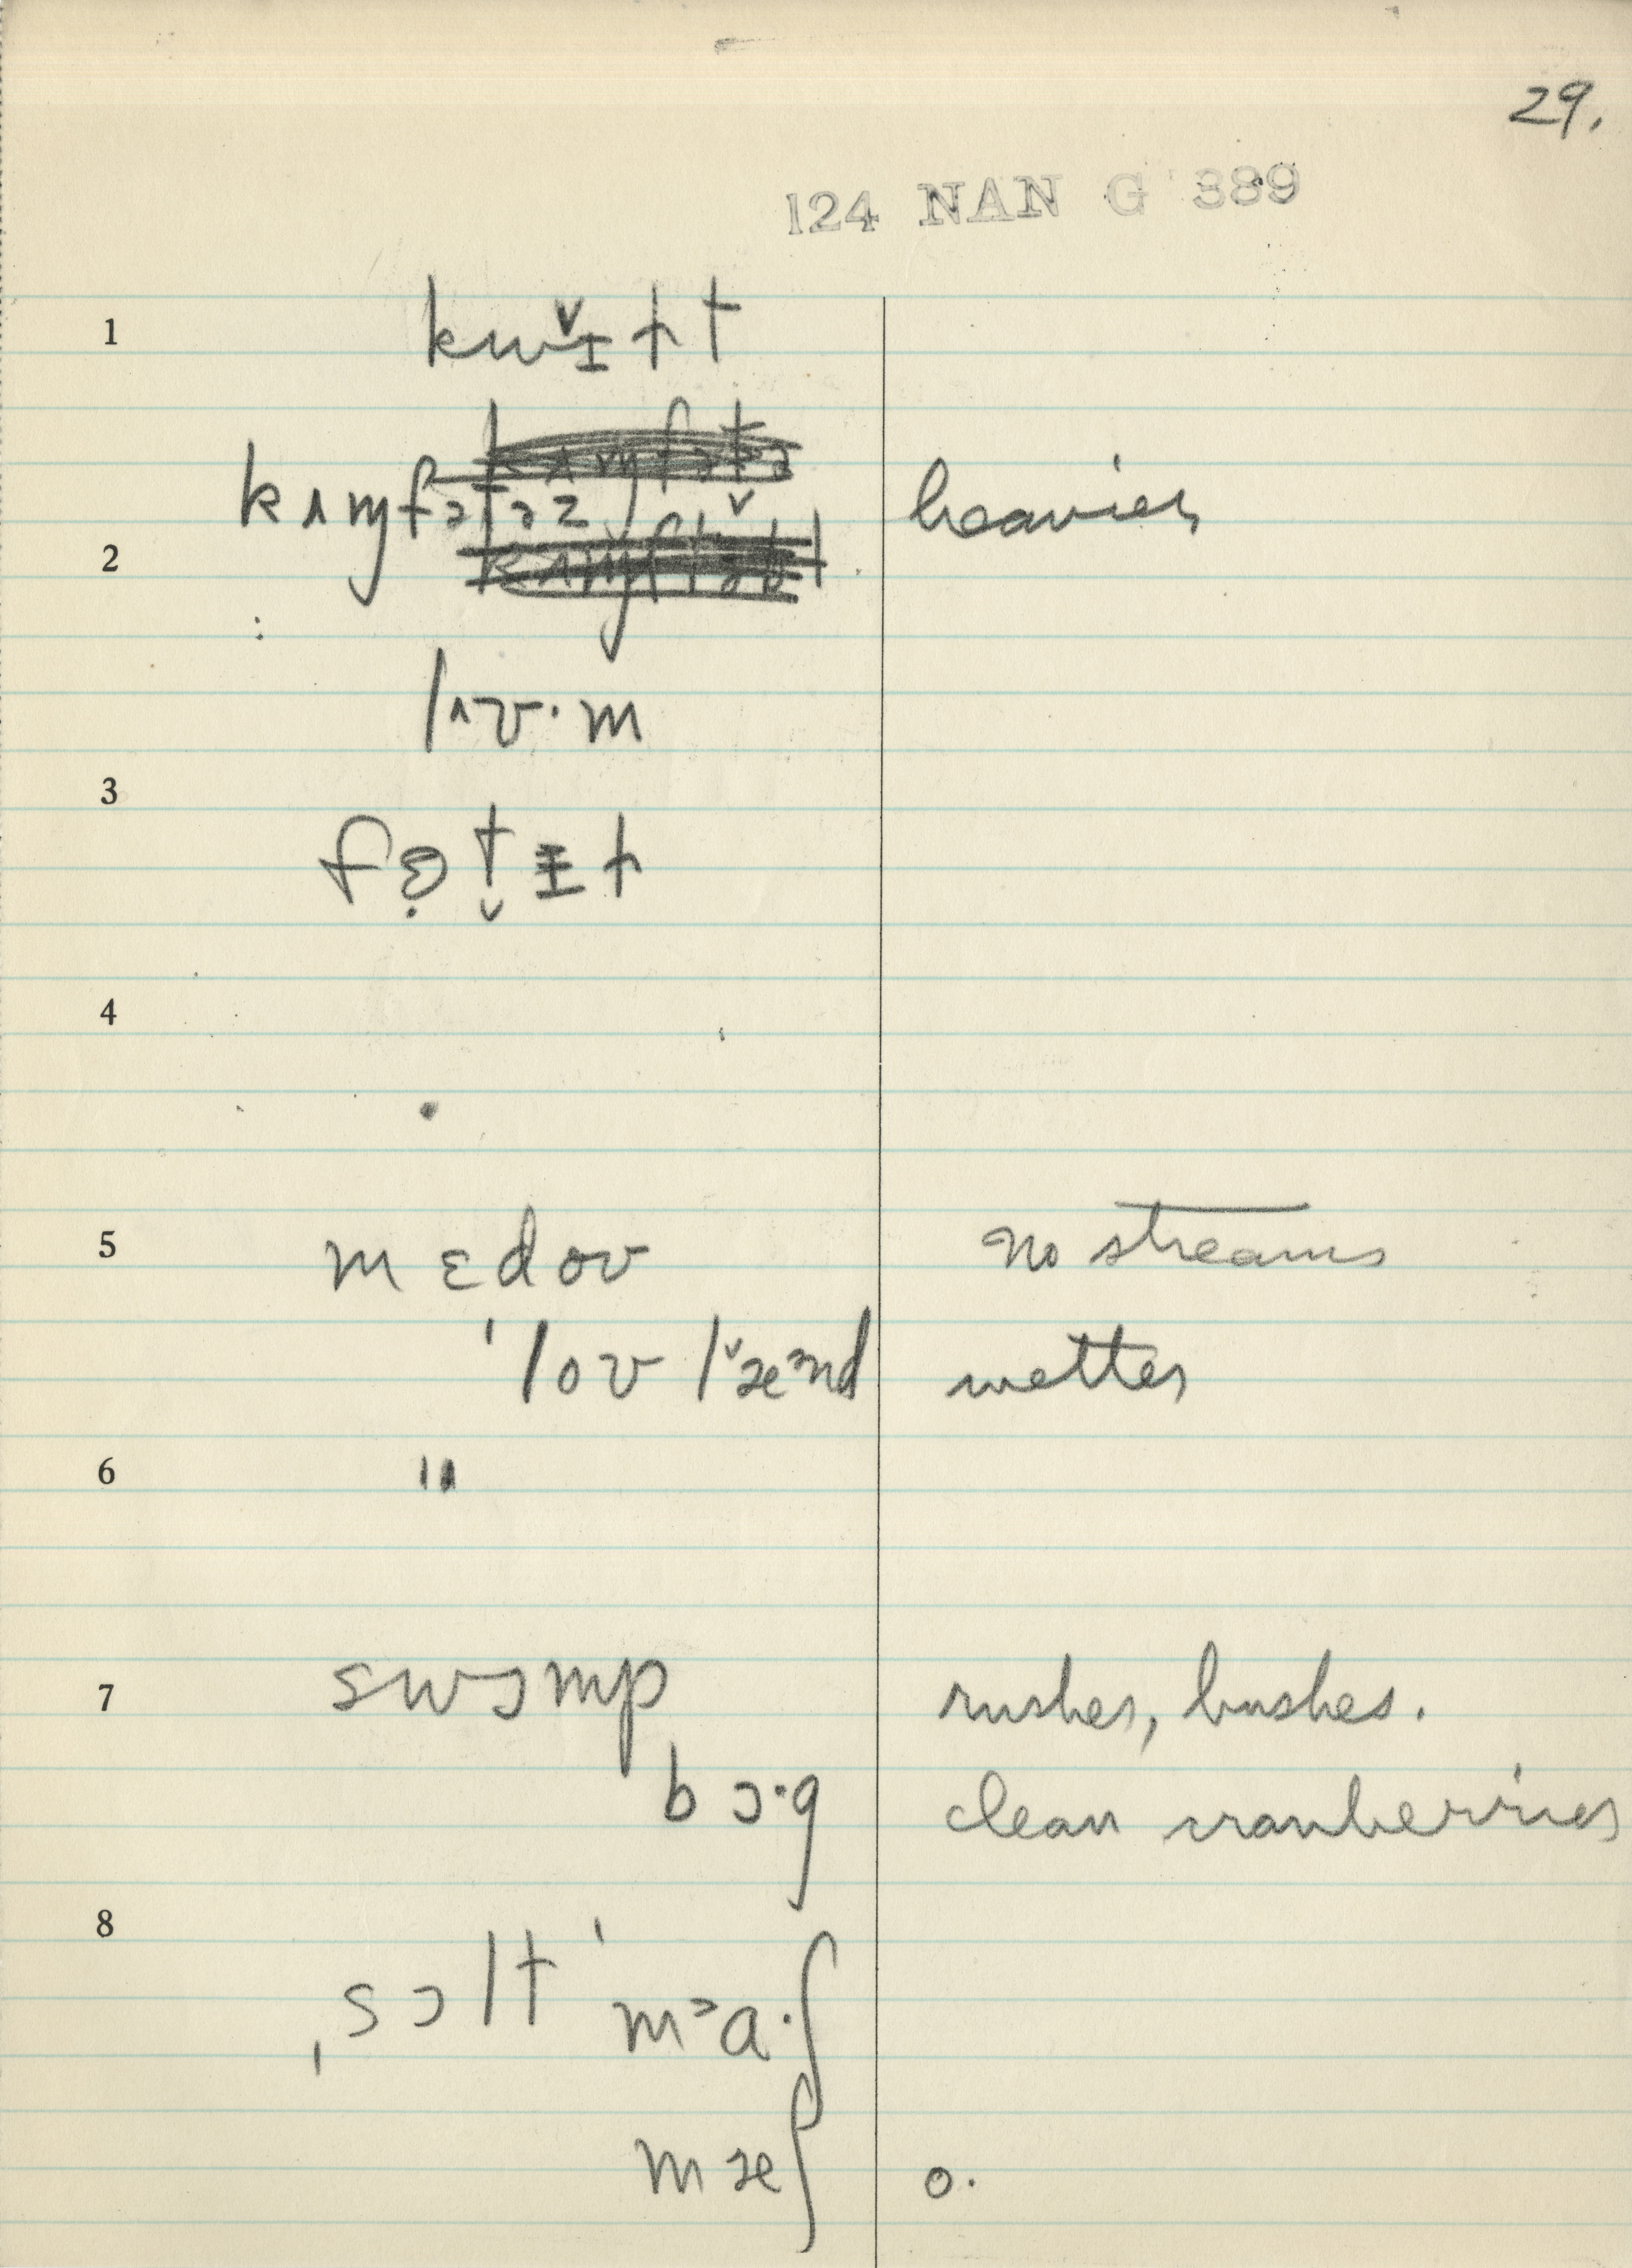 29.
124 NAN G 389
1
kwɪ̌ɫt
kʌɱfətəz heavier
2
lʌʊ·m
3
fɵ̣t̬ɪɫ
4
5 mɛdoʊ no streams
ˈloʊ lˇæᵊnd wetter
6 "
7 swɔmp rushes, bushes.
bɔ·g clean cranberries
8
ˌsɔlt ˈmᵊa·ʃ
mæʃ o.